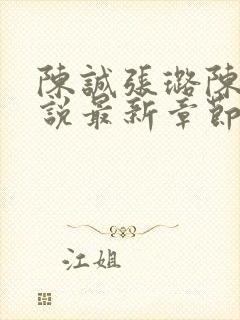 陳誠張璐陳
説最新章節
江姐